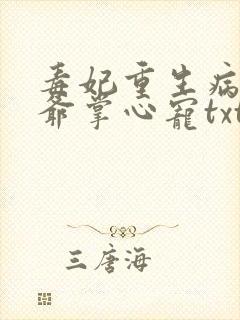 毒妃重生病
爺掌心寵txt
三唐海